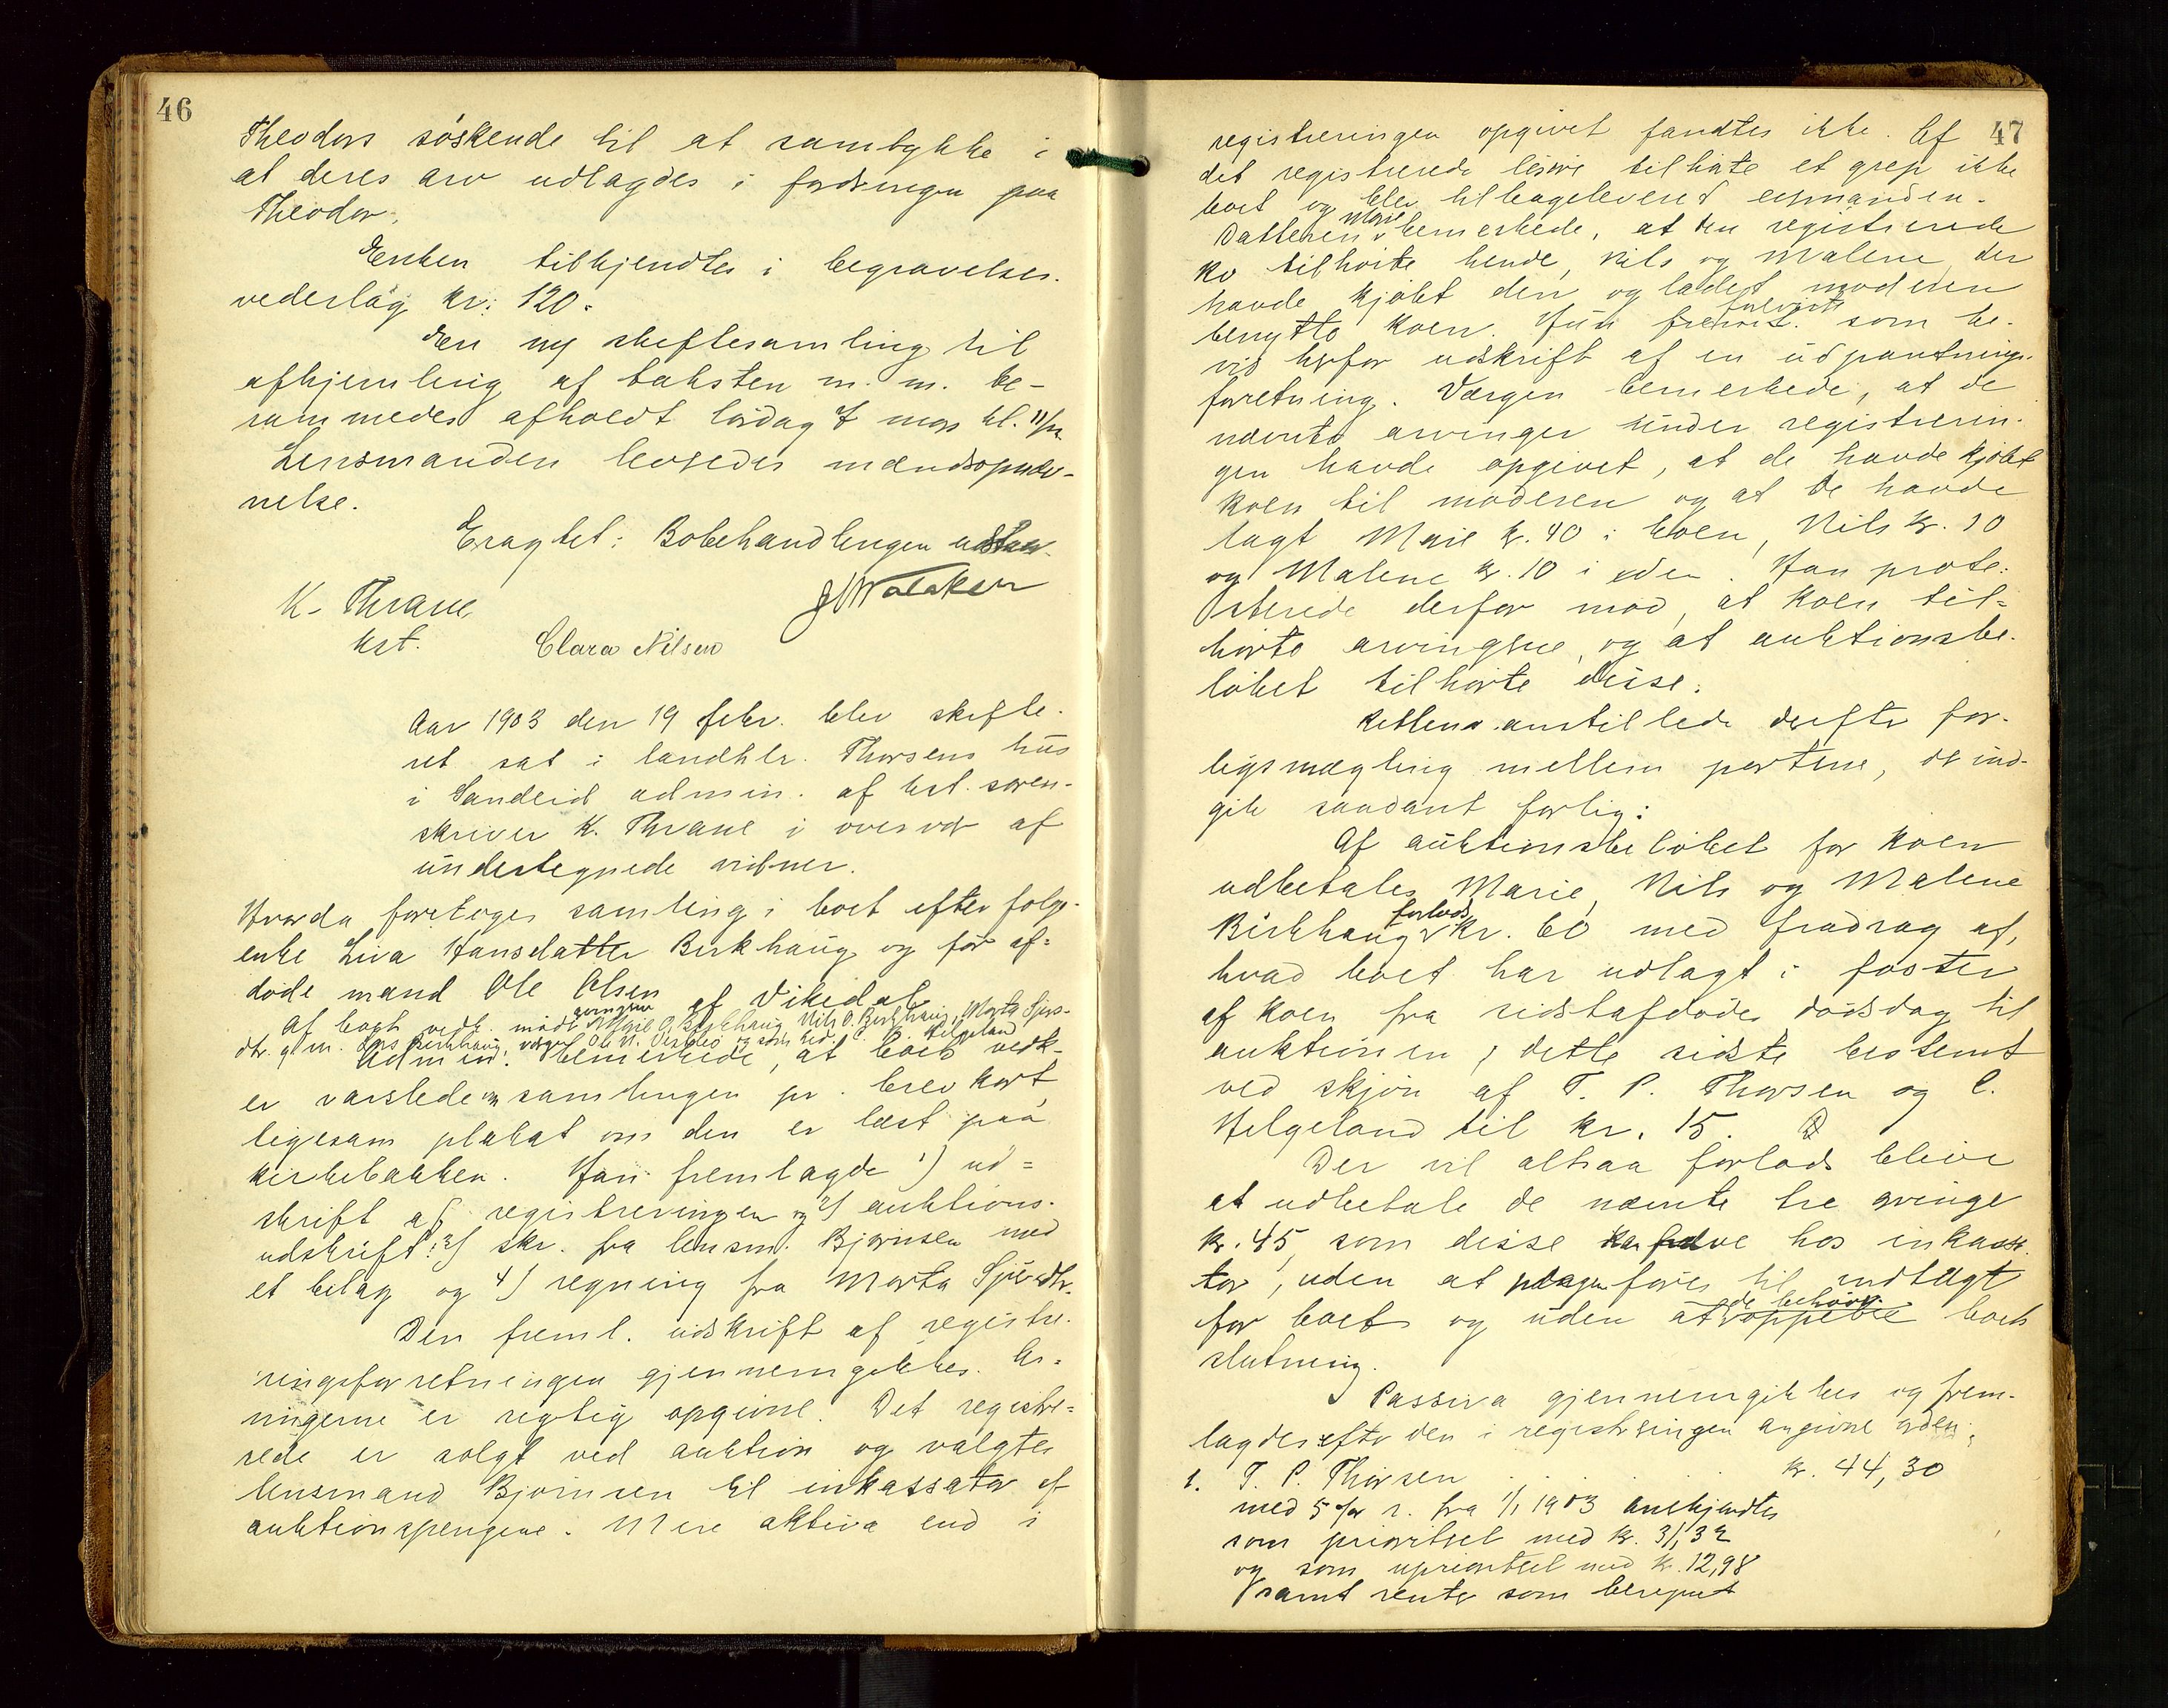 46
Theodors söskende til at samtykke i
at deres arv udlagdes i fordringen paa
Theodor.
Enken tilkjendtes i begravelses-
vederlag kr: 120.
En ny skiftesamling til
afhjemling af taksten m. m. be-
rammedes afholdt lördag 7 mars kl. 11
Lensmanden besörger mændsopnæv-
nelse.
Eragtet: Bobehandlingen udstaar.
K. Thrane
kst.
Clara Nilsen
Aar 1903 den 19 febr. blev skifte-
ret sat i landhlr. Thorsens hus
i Sandeid admin. af kst. soren-
skriver K. Thrane i overvær af
undertegnede vidner.
Hvorda foretoges samling i boet efter folge-
enke Liva Hansdatter Birkhaug og för af-
döde mand Ole Olsen af Vikedal
Af boets vedk. mödt arvingerne Marie O. Birkhaug, Nils O. Birkhaug, Marta Sjurs-
dtr. g. m. Lars Birkhaug, værgen Ole N. og som kred. C. B. Helgeland
Admin. bemerkede, at boets vedk-
er varslede om samlingen pr. brevkort,
ligesom plakat om den er læst paa
kirkebakken. Han fremlagde 1) ud-
skrift af registreringen og 2) auktions-
udskrift: 3) skr. fra lensm. Bjørnsen med
et bilag og 4) regning fra Marta Sjursdtr.
Den freml. udskrift af registre-
ringsforretningen gjennemgikkes. Ar-
vingerne er rigtig opgivne. Det registre-
rede er solgt ved auktion og valgtes
lensmand Bjørnsen til inkassator af
auktionspengene. Mere aktiva end i
47
registreringen opgivet fandtes ikke. Af
det registrerede lösöre tilhörte et grep ikke
boet og blev tilbageleveret eiermanden.
Datteren Marie bemerkede, at den registrerede
ko tilhörte hende, Nils og Malene, der
havde kjöbt den og ladet moderen
benytte koen. Hun foreviste som be-
vis herfor udskrift af en udpantnings-
forretning. Værgen bemerkede, at de
nævnte arvinger under registrerin-
gen havde opgivet, at de havde kjöbt
koen til moderen og at de havde
lagt Marie kr. 40 i koen, Nils kr. 10
og Malene kr. 10 i den. Han prote-
sterede derfor mod, at koen til-
hörte arvingerne, og at auktionsbe-
löbet tilhörte disse.
Retten anstillede derefter for-
ligsmægling mellem parterne, der ind-
gik saadant forlig:
Af auktionsbelöbet for koen
udbetales Marie, Nils og Malene
Birkhaug forlods kr. 60 med fradrag af,
hvad boet har udlagt i foster
af koen fra sidstafdödes dödsdag til
auktionen, dette sidste bestemt
ved skjön af T. P. Thorsen og C.
Helgeland til kr. 15.
Der vil altsaa forlods blive
at udbetale de nævnte tre arvinger
kr. 45, som disse kan hæve hos inkassa-
tor, uden at pengene föres til indtægt
for boet og uden at de behöver oppebie boets
slutning.
Passiva gjennemgikkes og frem-
lagdes efter den i registreringen angivne orden:
1. T. P. Thorsen . . . . . kr. 44,30
med 5 % r. fra 1/1 1903 anerkjendtes
som prioritert med kr. 31,32
og som uprioritert med kr. 12,98
samt renter som beregnet